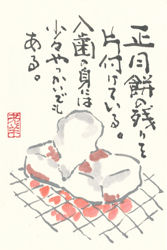 正月餅の残りを
片付けている。
入歯の身には
少々やっかいでも
ある。